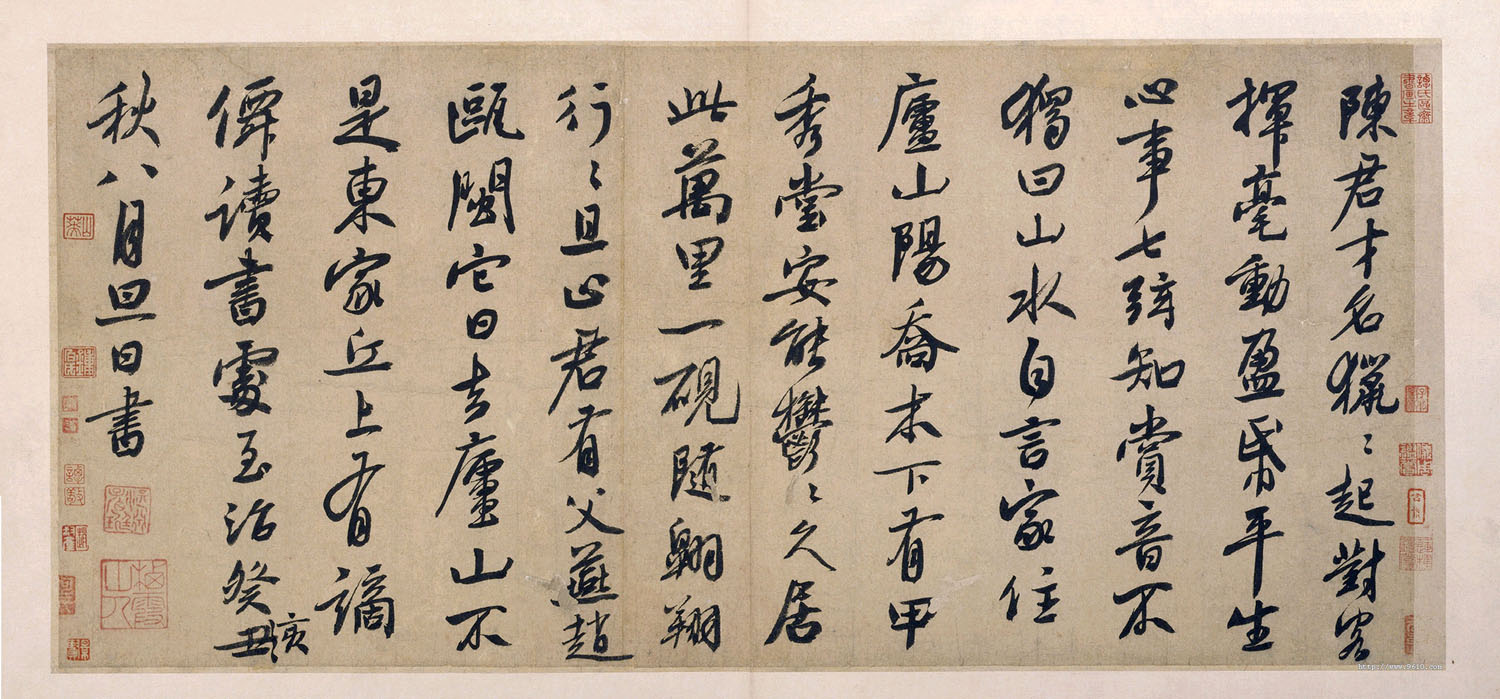 陳君才名獵〻起對客
揮毫動盈帋平生
心事七弦知賞音不
獨曰山水自言家住
廬山陽喬木下有甲
秀堂安能鬱〻久居
此萬里一硯隨翱翔
行〻且止君有父燕趙
甌閩它日去廬山不
是東家丘上有謫
僊讀書處至治癸亥
丑
秋八月旦日書
http://www.9610.com